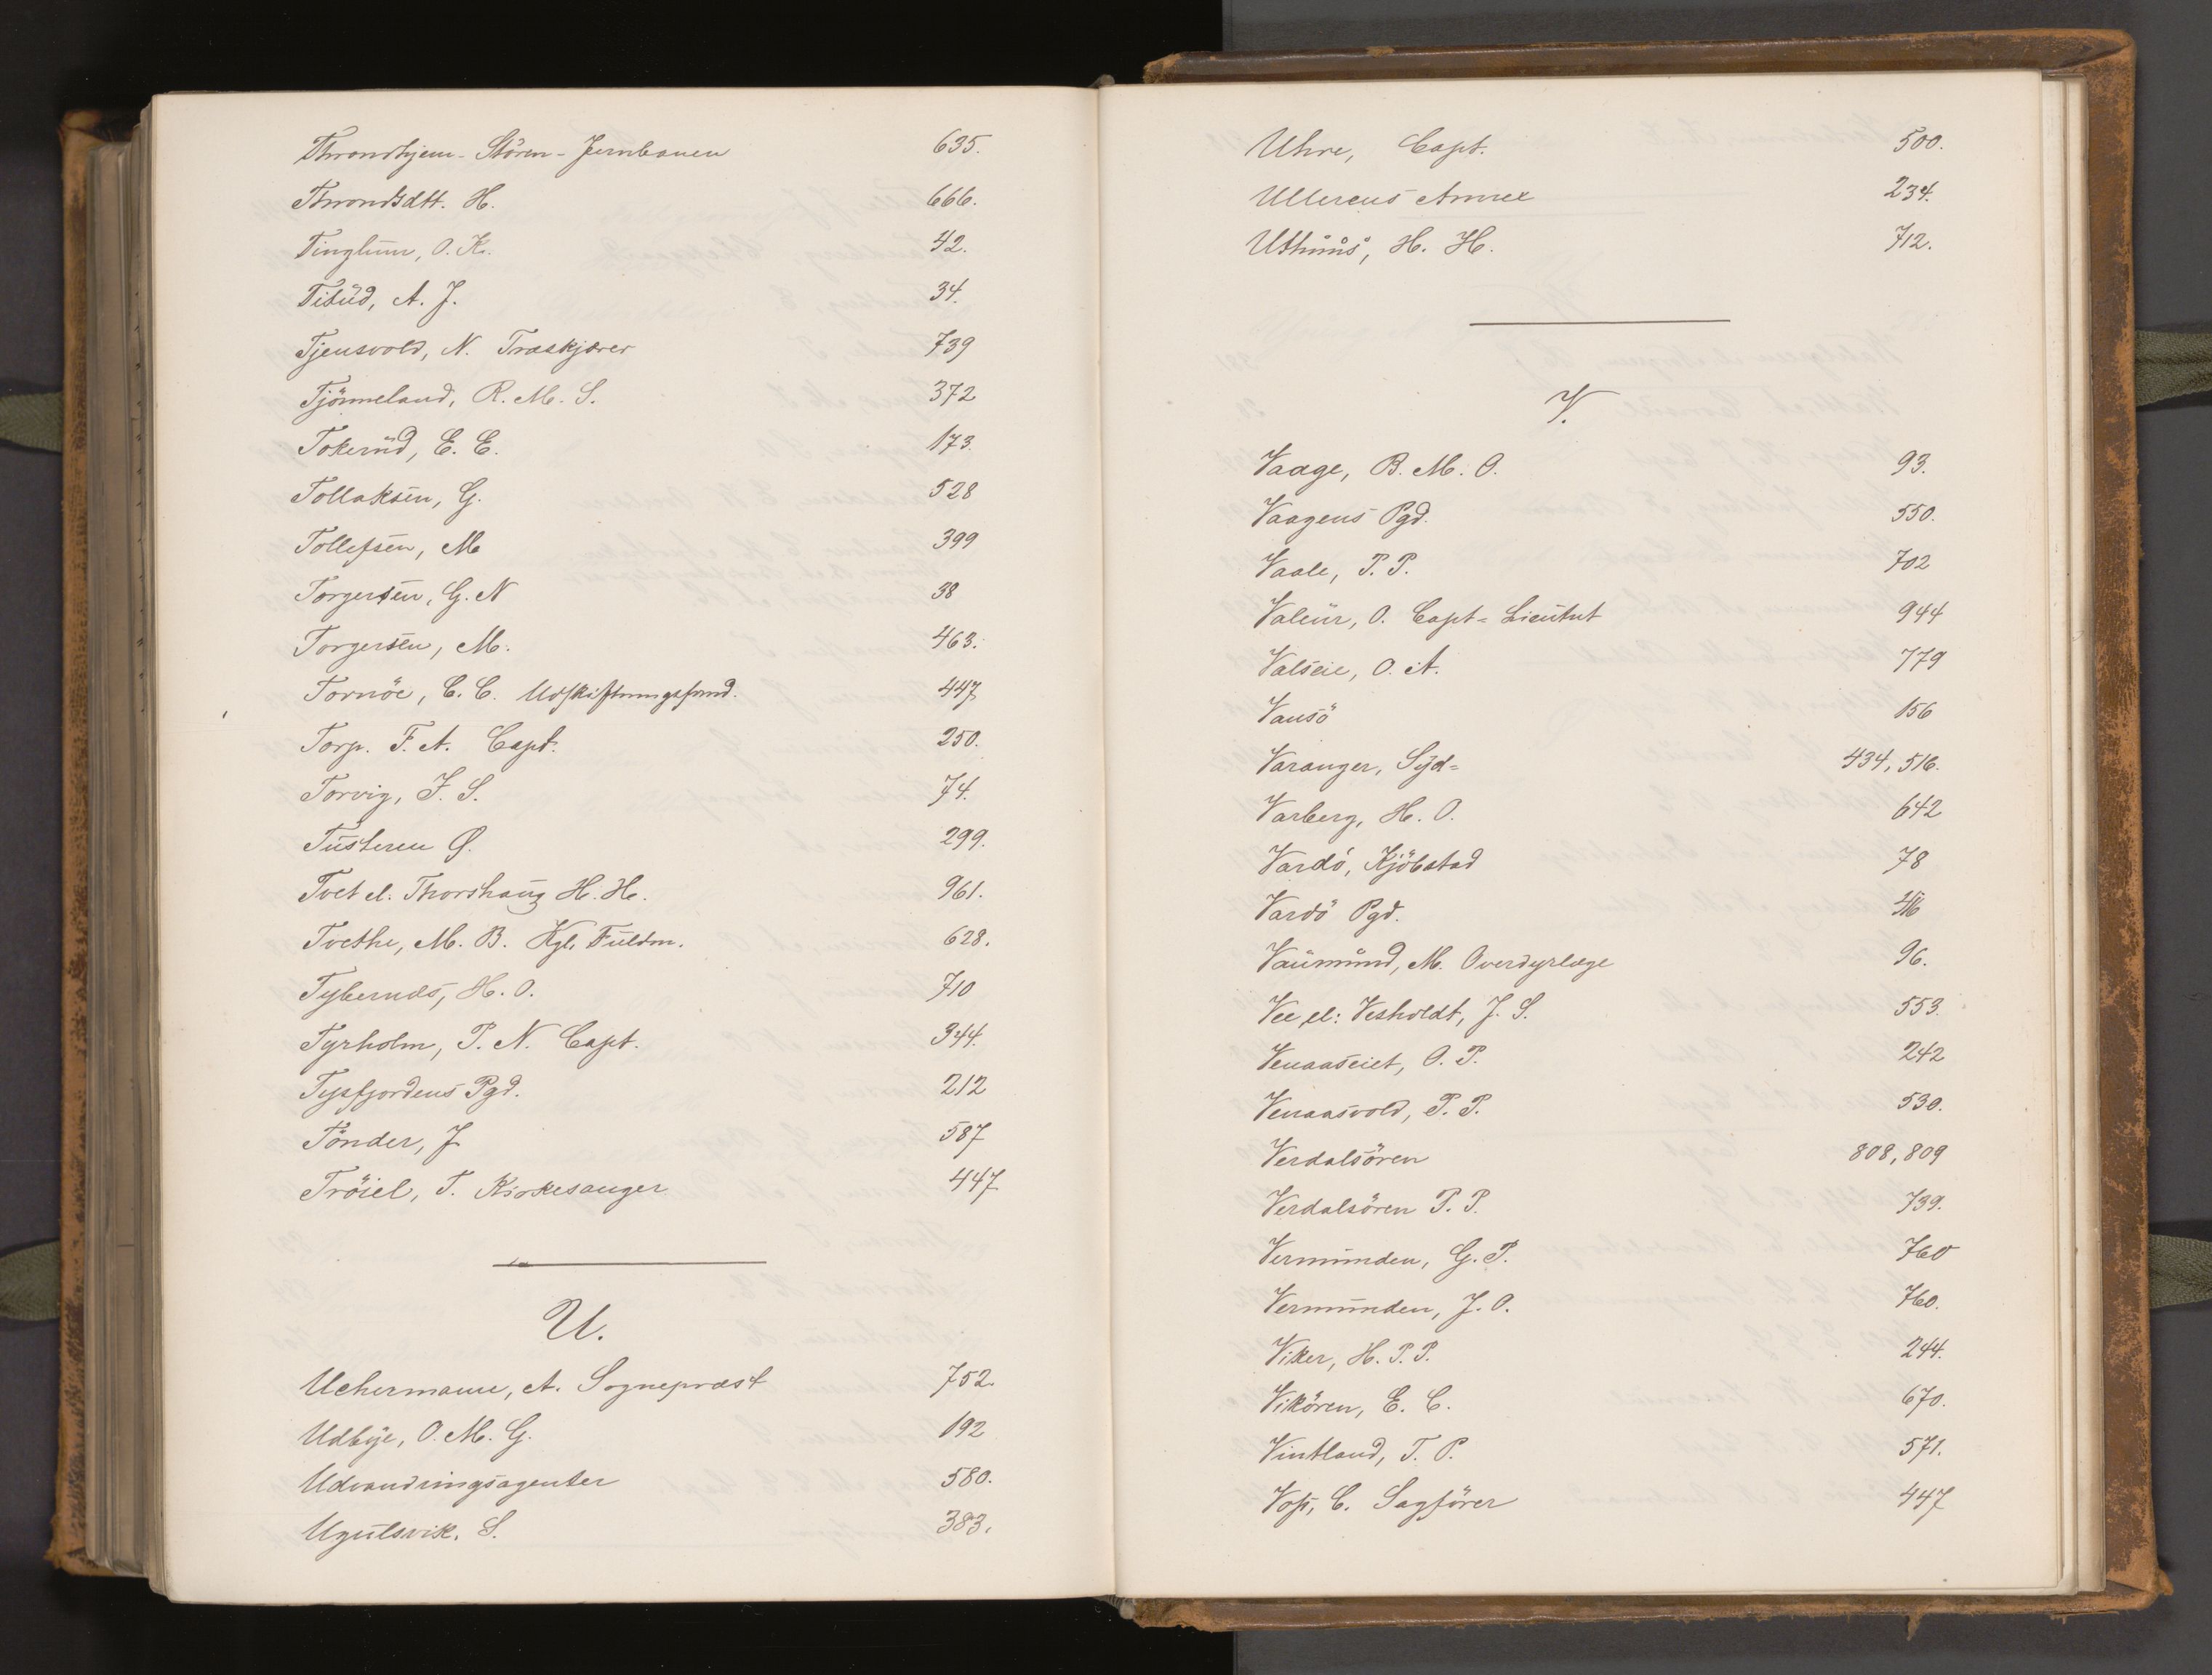 Throndhjem-Stören-Jernbanen 635.
Throndsdtt. H. 666.
Tinglum, O. K. 42.
Tisüd, A. J. 34.
Tjensvold, N. Træskjærer 739
Tjönneland, R. M. S. 372
Tokerud, E. E. 173.
Tollaksen, G. 528
Tollefsen, M 399
Torgersen, G. N 38
Torgersen, M. 463.
Tornöe, C. C. Udskiftningsformd. 447
Torp. F. A. Capt. 250.
Torvig, J. S. 74.
Tusteren Ø. 299.
Tvet el: Thorshaug H. H. 961.
Tvethe, M. B. Kgl. Fuldm. 628.
Tybernds, H. O. 710
Tyrholm, P. N. Capt. 344.
Tysfjordens Pgd. 212
Tönder, J 587
Tröiel, T. Kirkesanger 447
U.
Uchermann, A. Sognepræst 752.
Udbye, O. M. G. 192
Udvandringsagenter 580.
Ugulsvik, S. 383.
Uhre, Capt. 500.
Ullerens Annex 234.
Uthuus, H. H. 712.
V.
Vaage, B. M. O. 93.
Vaagens Pgd. 550.
Vaale, P. P. 702
Valeur, O. Capt-Lieutnt 944
Valseie, O. A. 779
Vansö 156
Varanger, Syd- 434, 516.
Varberg, H. O. 642
Vardö, Kjöbstad 78
Vardö Pgd.
Vaumund, M. Overdyrlæge 96.
Vee el: Vesholdt, J. S. 553.
Venaaseiet, O. P. 242
Venaasvold, P. P. 530.
Verdalsören 808, 809
Verdalsören P. P. 739.
Vermunden, G. P. 760
Vermunden, J. O. 760.
Viker, H. P. P. 244.
Vikören, E. C. 670.
Vintland, T. P. 571.
Voss, C. Sagförer 447